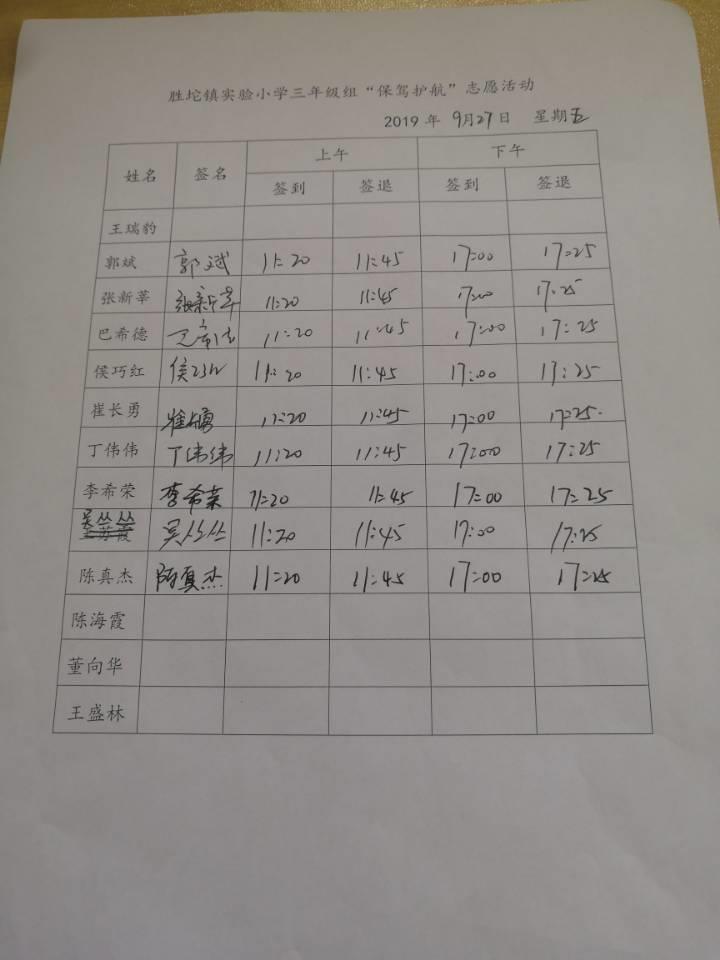 胜坨镇实验小学三年级组“保驾护航”志愿活动
2019 年 9月27日 星期五
姓名 签名 上午 下午
签到 签退 签到 签退
王瑞豹
郭斌 郭斌 11:20 11:45 17:00 17:25
张新莘 张新莘 11:20 11:45 17:00 17:25
巴希德 巴希德 11:20 11:45 17:00 17:25
侯巧红 侯巧红 11:20 11:45 17:00 17:25
崔长勇 11:20 11:45 17:00 17:25
丁伟伟 丁伟伟 11:20 11:45 17:00 17:25
李希荣 李希荣 11:20 11:45 17:00 17:25
吴丝丝 吴丝丝 11:20 11:45 17:00 17:25
陈真杰 陈真杰 11:20 11:45 17:00 17:25
陈海霞
董向华
王盛林